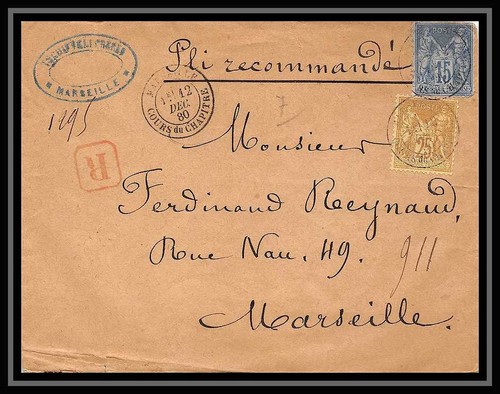 MARSEILLE
Pli recommandé
15
12
DEC
80
COURS du CHAPITRE
25
1295
7
R
Monsieur
Ferdinand Reynaud,
Rue Nau, 49.
911
Marseille.